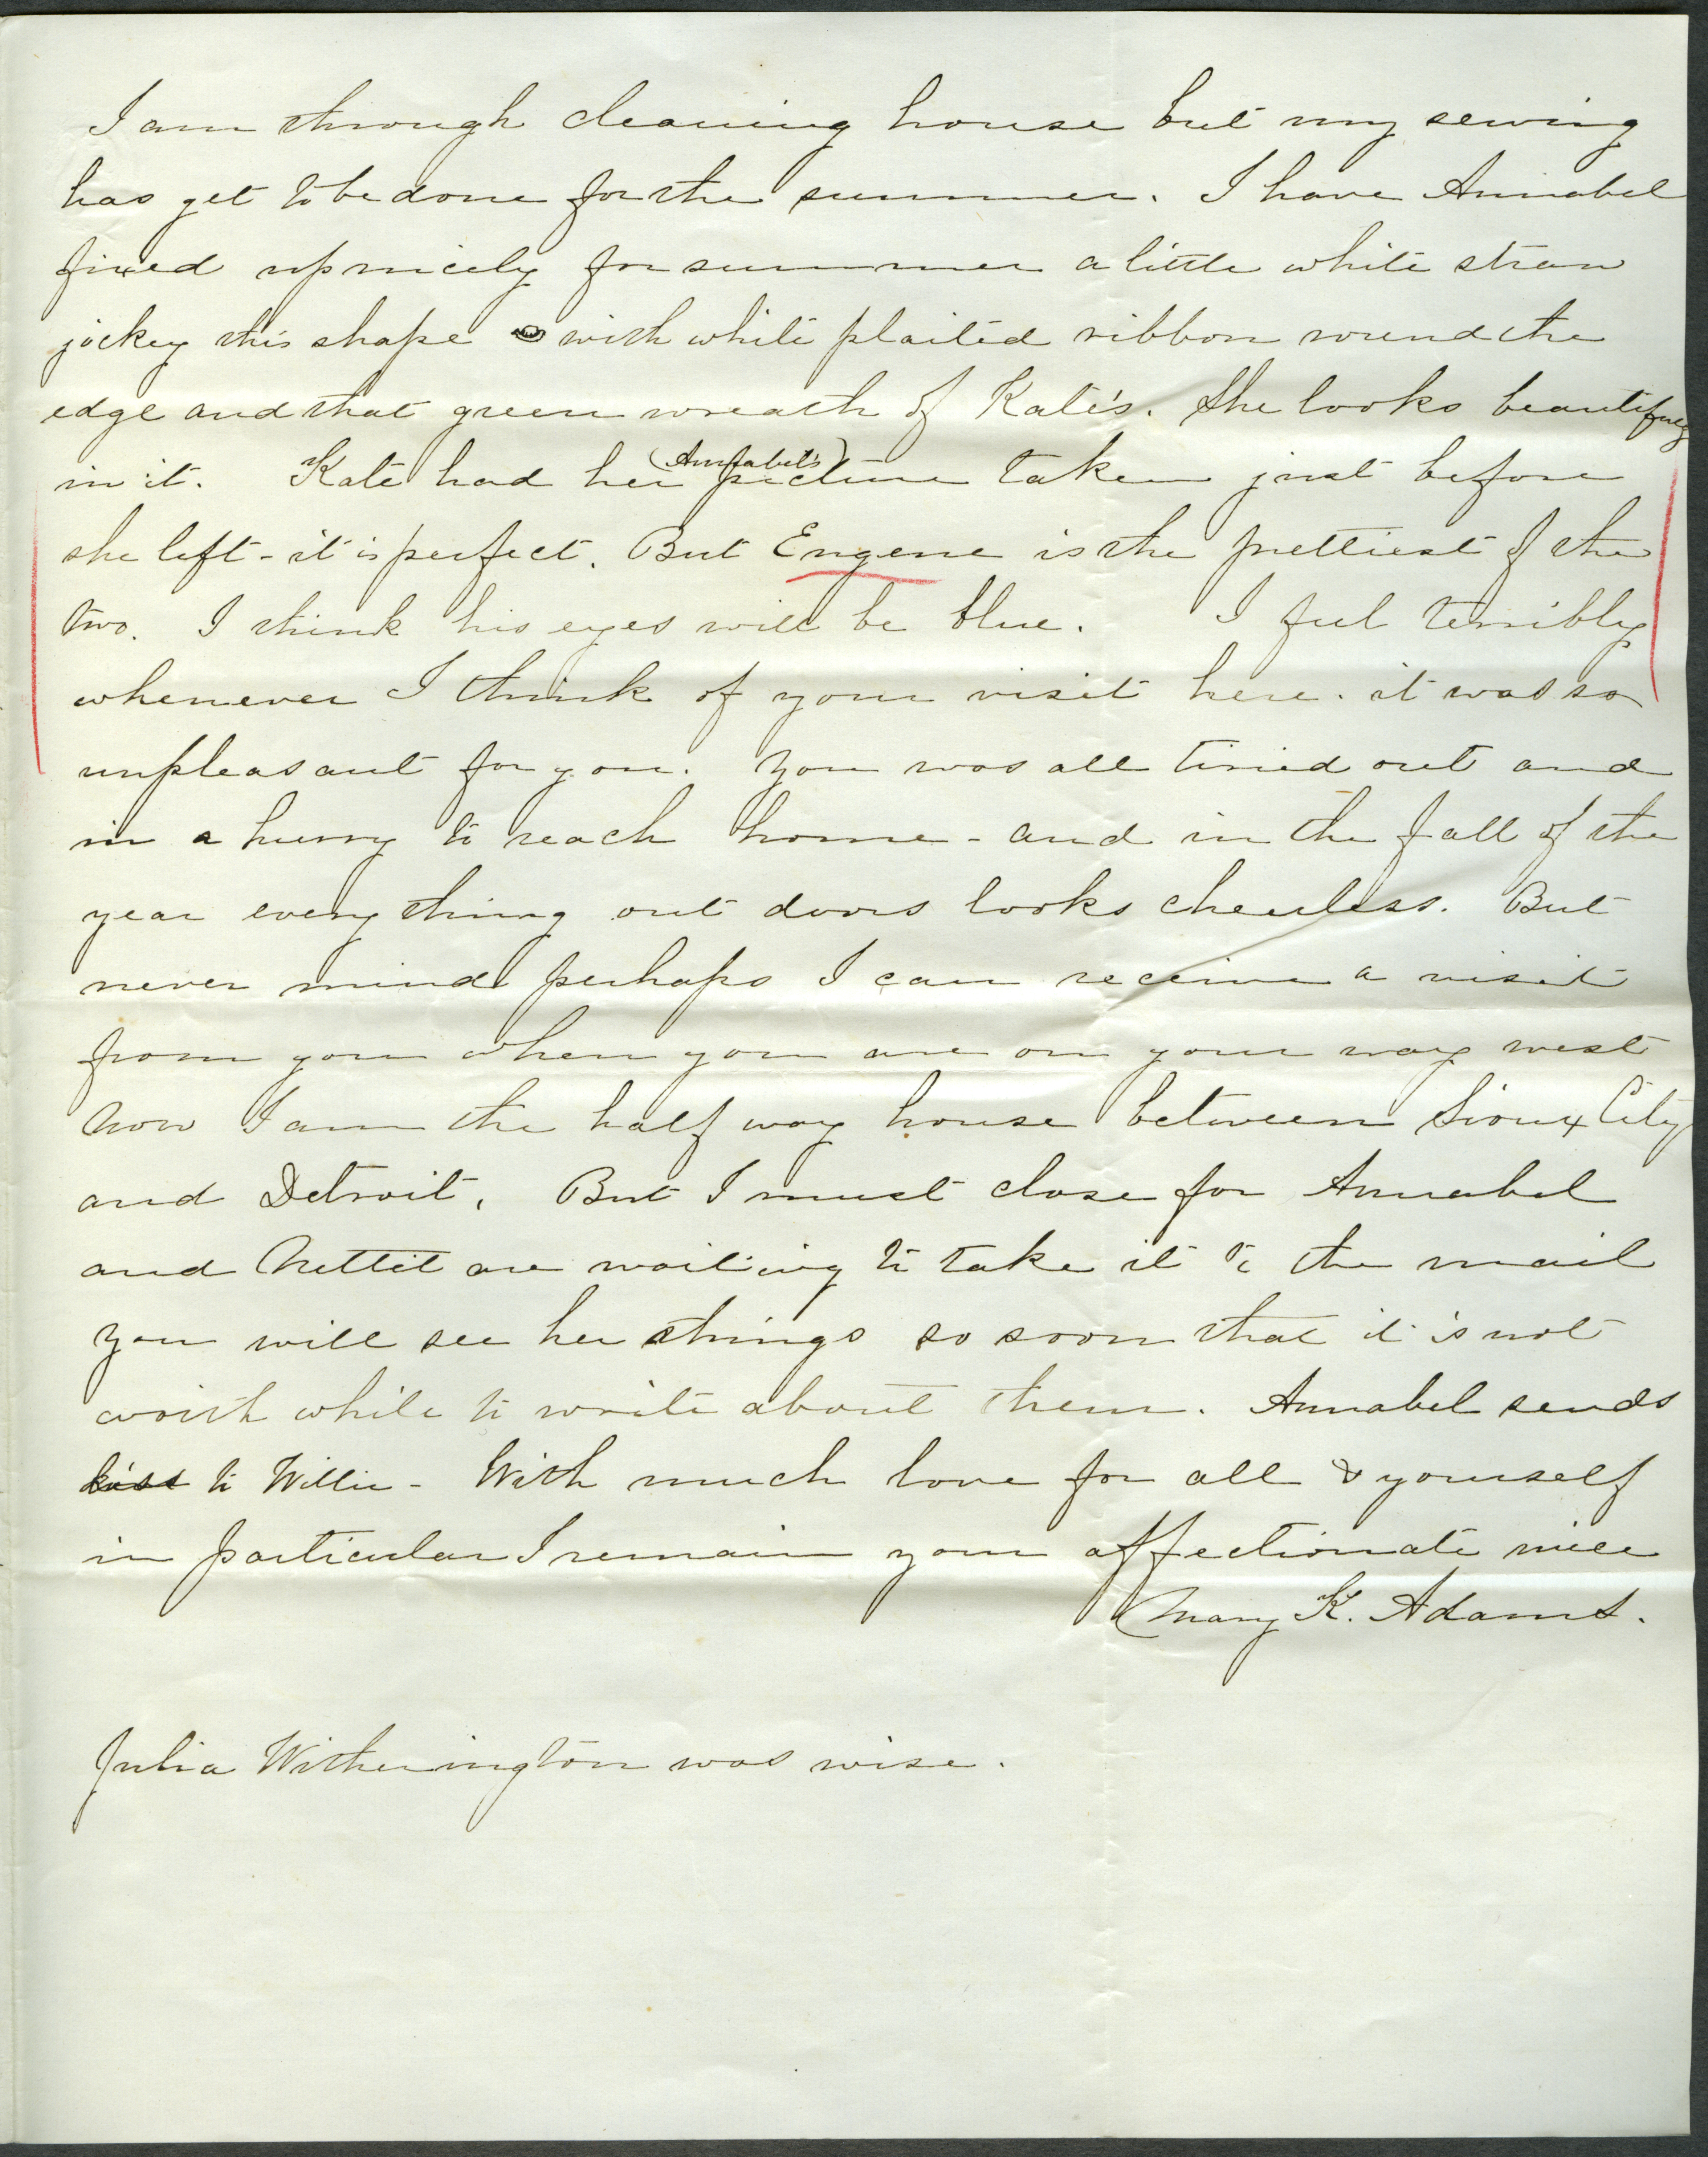 I am through cleaning house but my sewing
has yet to be done for the summer. I have Annabel
fixed up nicely for summer a little white straw
jockey this shape with white plaited ribbon round the
edge and that green wreath of Kate's. She looks beautifuly
in it. Kate had her (Annabel's) picture taken just before
she left - it is perfect. But Eugene is the prettiest of the
two. I think his eyes will be blue. I feel terribly
whenever I think of your visit here. it was so
unpleasant for you. You was all tired out and
in a hurry to reach home - and in the fall of the
year every thing out doors looks cheerless. But
never mind perhaps I can receive a visit
from you when you are on your way west
Now I am the half way house between Sioux City
and Detroit. But I must close for Annabel
and Nettie are waiting to take it to the mail
You will see her things so soon that it is not
worth while to write about them. Annabel sends
kiss to Willie - With much love for all & yourself
in particular I remain your affectionate niece
Mary K. Adams.
Julia Witherington was wise.